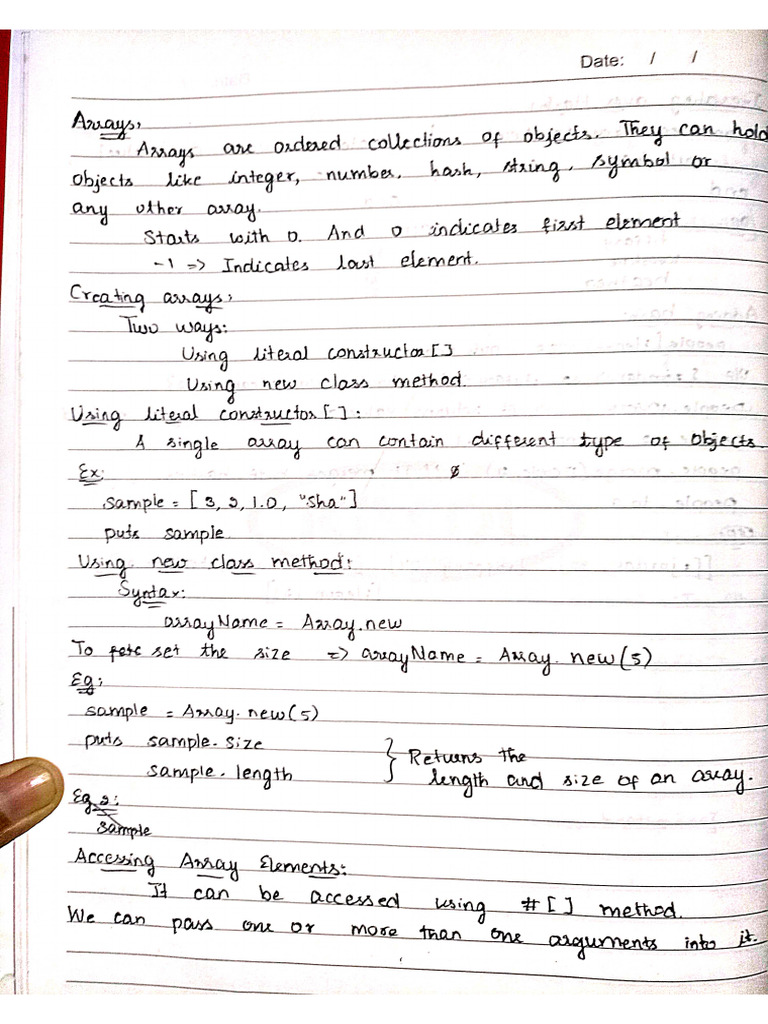 Date: / /
Arrays:
Arrays are ordered collections of objects. They can hold
objects like integer, number, hash, string, symbol or
any other array.
Starts with 0. And 0 indicates first element
-1 => Indicates last element.
Creating arrays:
Two ways:
Using literal constructor []
Using new class method.
Using literal constructor []:
A single array can contain different type of objects
Ex:
sample = [3, 2, 1.0, "Sha"]
puts sample
Using new class method:
Syntax:
arrayName = Array.new
To set the size => arrayName = Array.new(5)
Eg:
sample = Array.new(5)
puts sample.size } Returns the
sample.length length and size of an array.
Eg 2:
sample
Accessing Array Elements:
It can be accessed using #[] method.
We can pass one or more than one arguments into it.